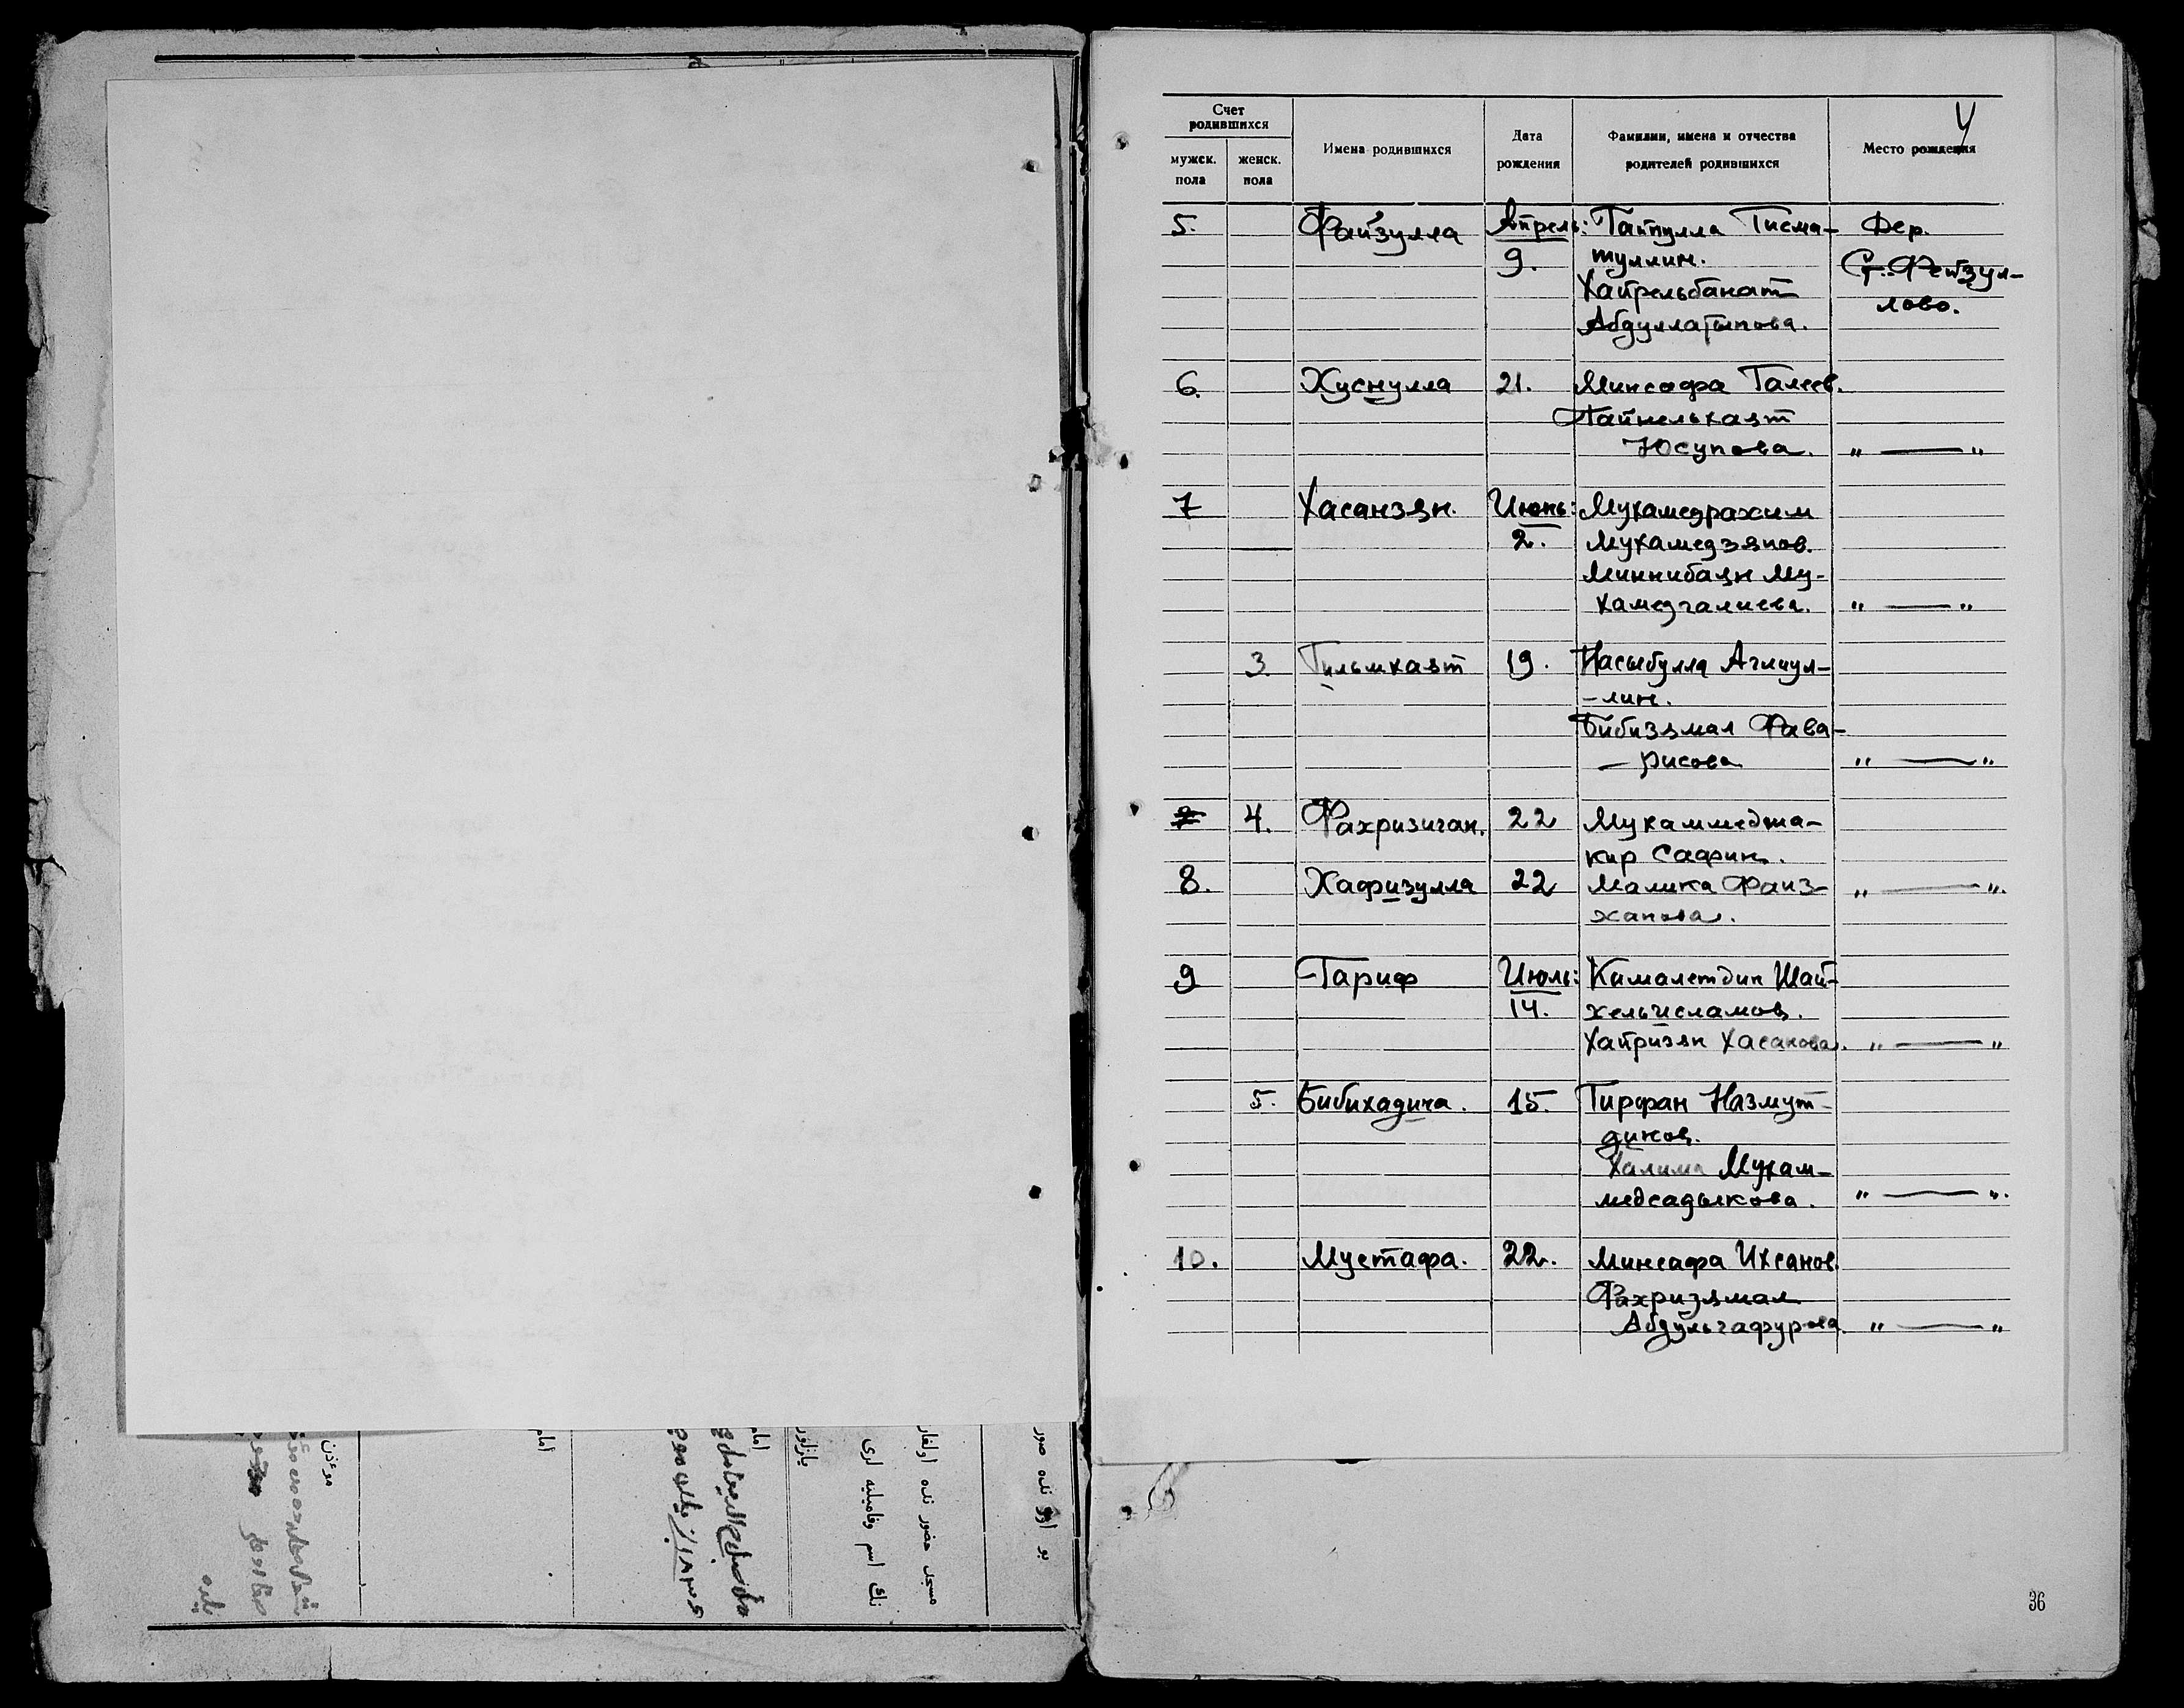 Счет родившихся
мужск. пола
женск. пола
Имена родившихся
Дата рождения
Фамилии, имена и отчества родителей родившихся
Место рождения
5. Файзулла Апрель: Гайнулла Гисма- Дер.
9. туллин. Ст.-Фейзул-
Хайрельбанат лово.
Абдуллатыпова.
6. Хуснулла 21. Минсафа Галеев.
Гайнельхаят
Юсупова. " — "
7 Хасанзян. Июнь: Мухамедрахим
2. Мухамедзянов.
Миннибаян Му-
хамедгалиева. " — "
3. Гильмхаят 19. Насыбулла Аглиул-
-лин.
Бибизямал Фава-
— рисова " — "
4. Фахризиган. 22 Мухаммедша-
кир Сафин.
8. Хафизулла 22 Малика Фаиз- " — ".
ханова.
9 Гариф Июль: Кималетдин Шай-
14. хельисламов.
Хайризян Хасанова. " — "
5. Бибихадича. 15. Гирфан Назмут-
динов.
Халима Мухам-
медсадыкова. " — ".
10. Мустафа. 22. Минсафа Ихсанов.
Фахризямал
Абдульгафурова. " — "
36
بو
مسجد حضور نده اولغان
نك اسم وفاميليه لرى
يازلور
امام
امام
موءذن